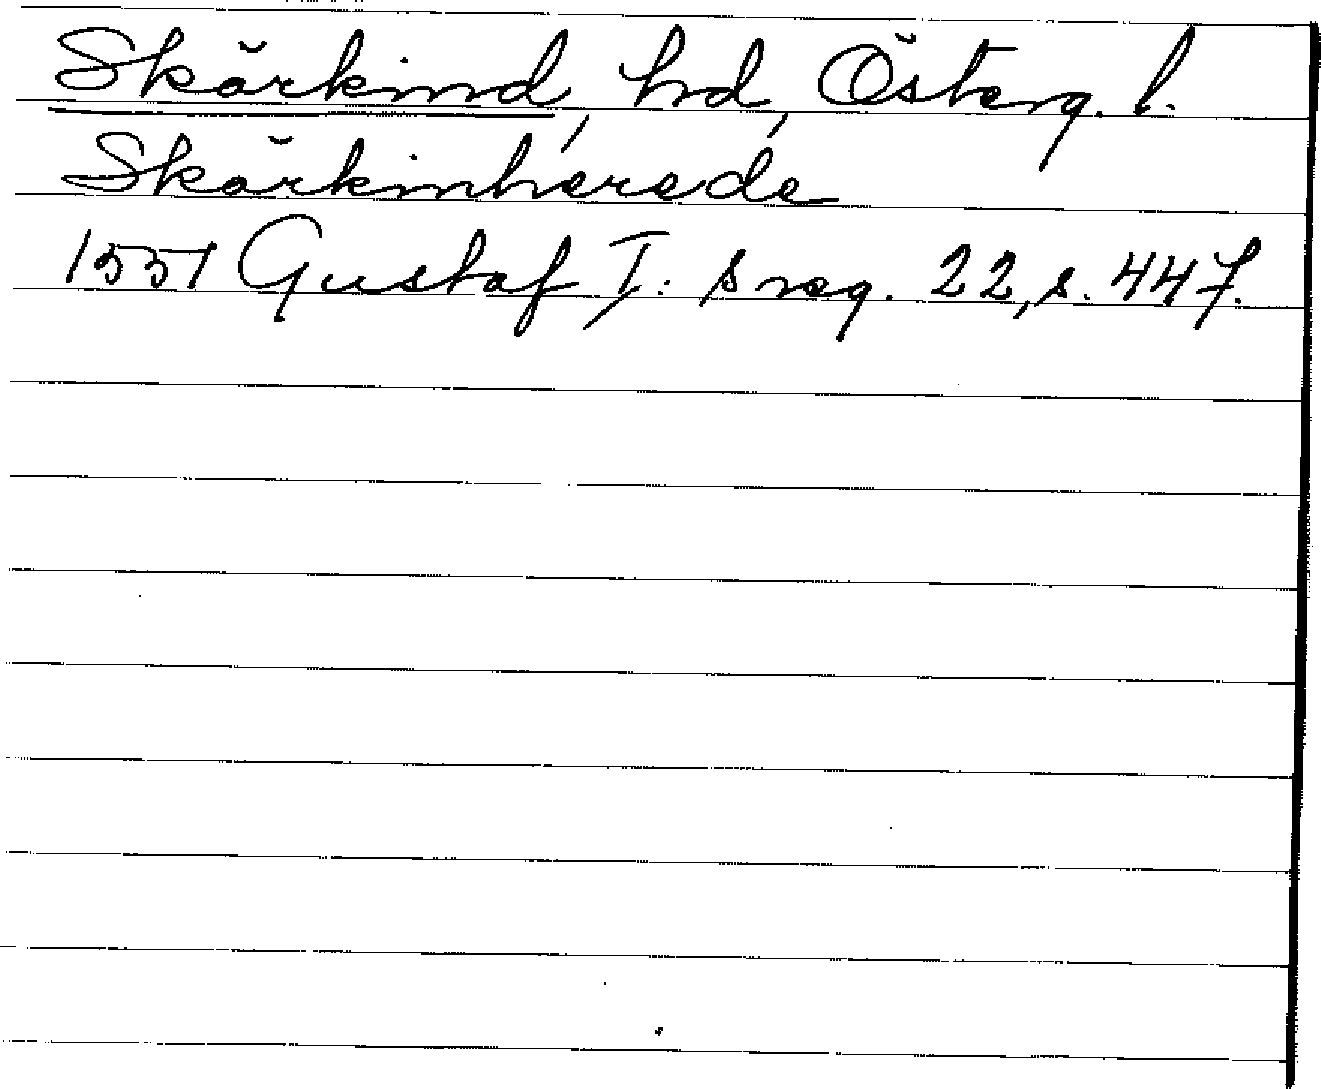 Skärkind, hd, Österg. l.
Skärkinherede
1551 Gustaf I: s reg. 22, s. 447.